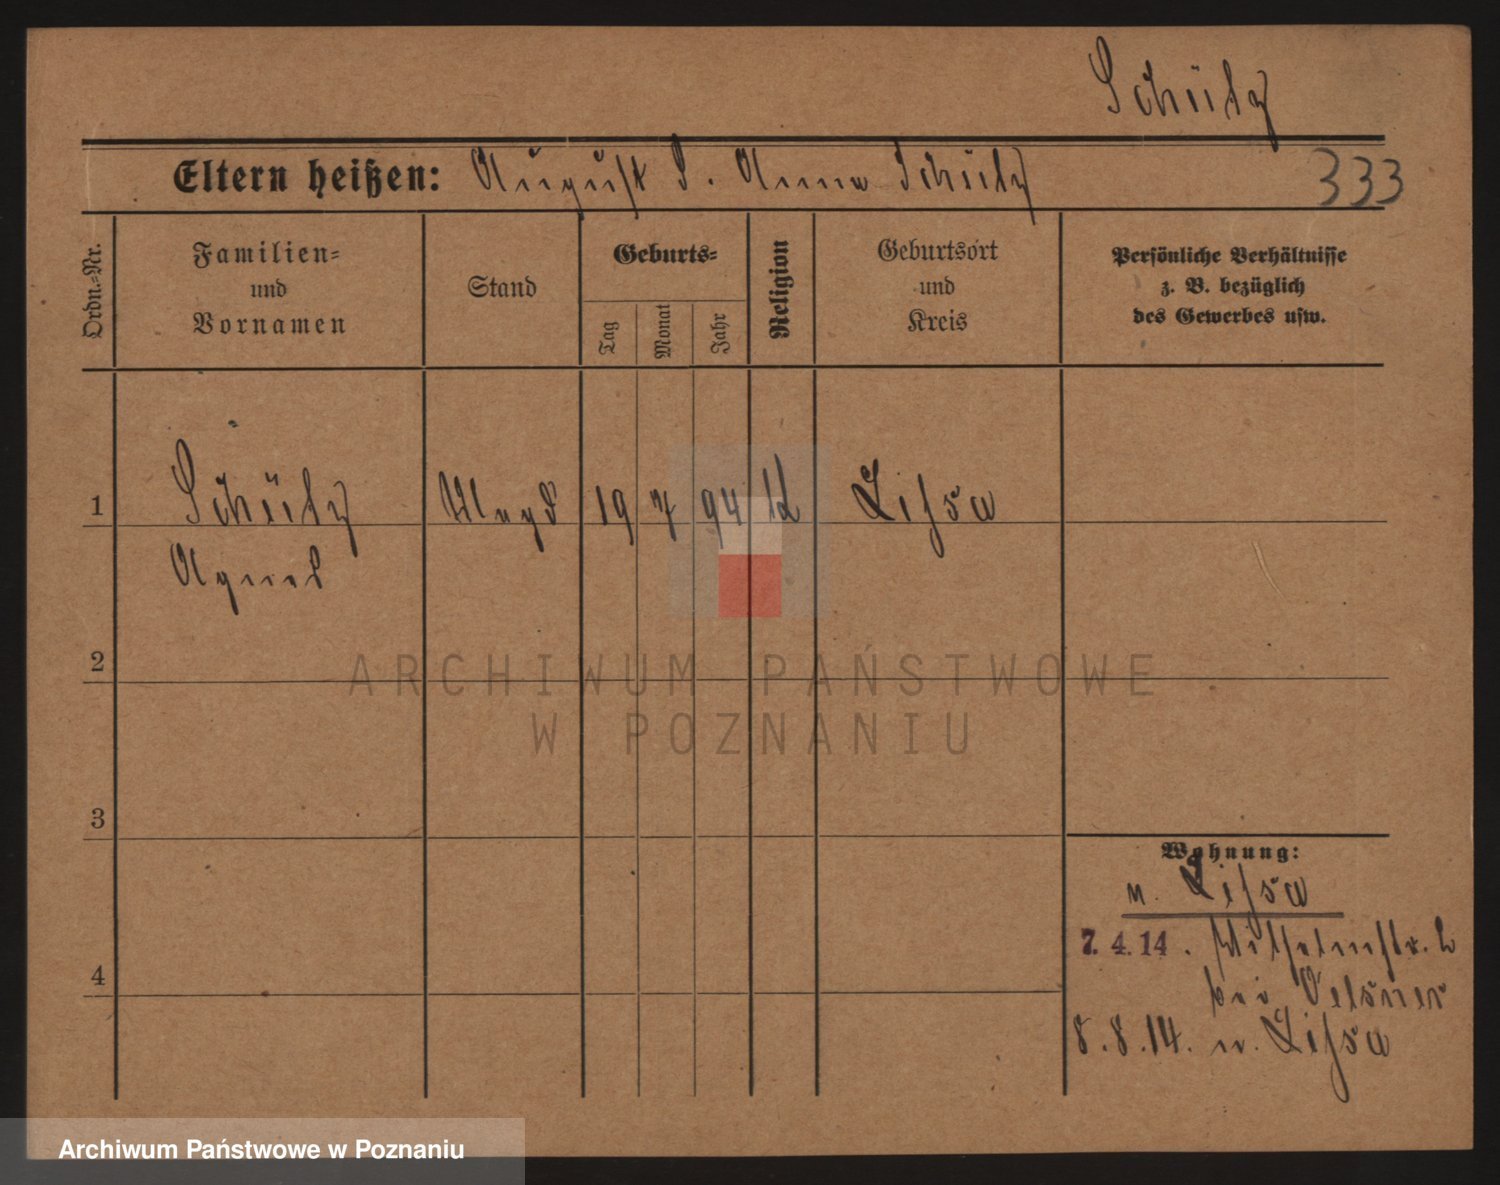 Schütz
Eltern heißen: August S. Anna Schütz
333
Ordn.-Nr.
Familien-
und
Vornamen
Stand
Geburts-
Tag
Monat
Jahr
Religion
Geburtsort
und
Kreis
Persönliche Verhältnisse
z. B. bezüglich
des Gewerbes usw.
1 Schütz Magd 19 7 94 Lissa
Agnes
2
3
4
Wohnung:
n. Lissa
7. 4. 14. Wilhelmstr. 2
bei Oelsner
8. 8. 14. n. Lissa
ARCHIWUM PAŃSTWOWE
W POZNANIU
Archiwum Państwowe w Poznaniu